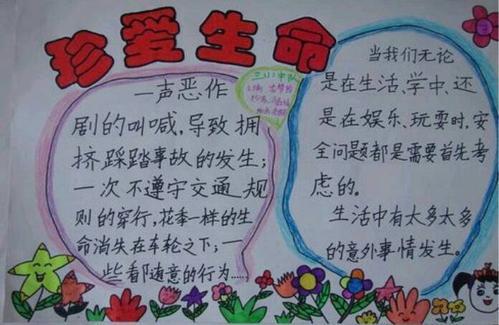 珍爱生命
一声恶作
剧的叫喊,导致拥
挤踩踏事故的发生;
一次不遵守交通规
则的穿行,花季一样的生
命消失在车轮之下;一
些看随意的行为……
三(1)中队
当我们无论
是在生活、学中、还
是在娱乐、玩耍时,安
全问题都是需要首先考
虑的。
生活中有太多太多
的意外事情发生。